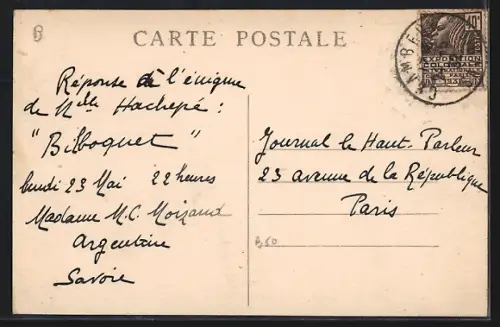 B
CARTE POSTALE
40c
EXPOSITION
COLONIALE
INTERNATIONALE
PARIS 1931
CHAMBE
Réponse à l'énigme
de Melle Hachepé :
"Bilboquet"
lundi 23 Mai 22 heures
Madame M.C. Moizand
Argentine
Savoie
Journal le Haut-Parleur
23 avenue de la République
Paris
B50